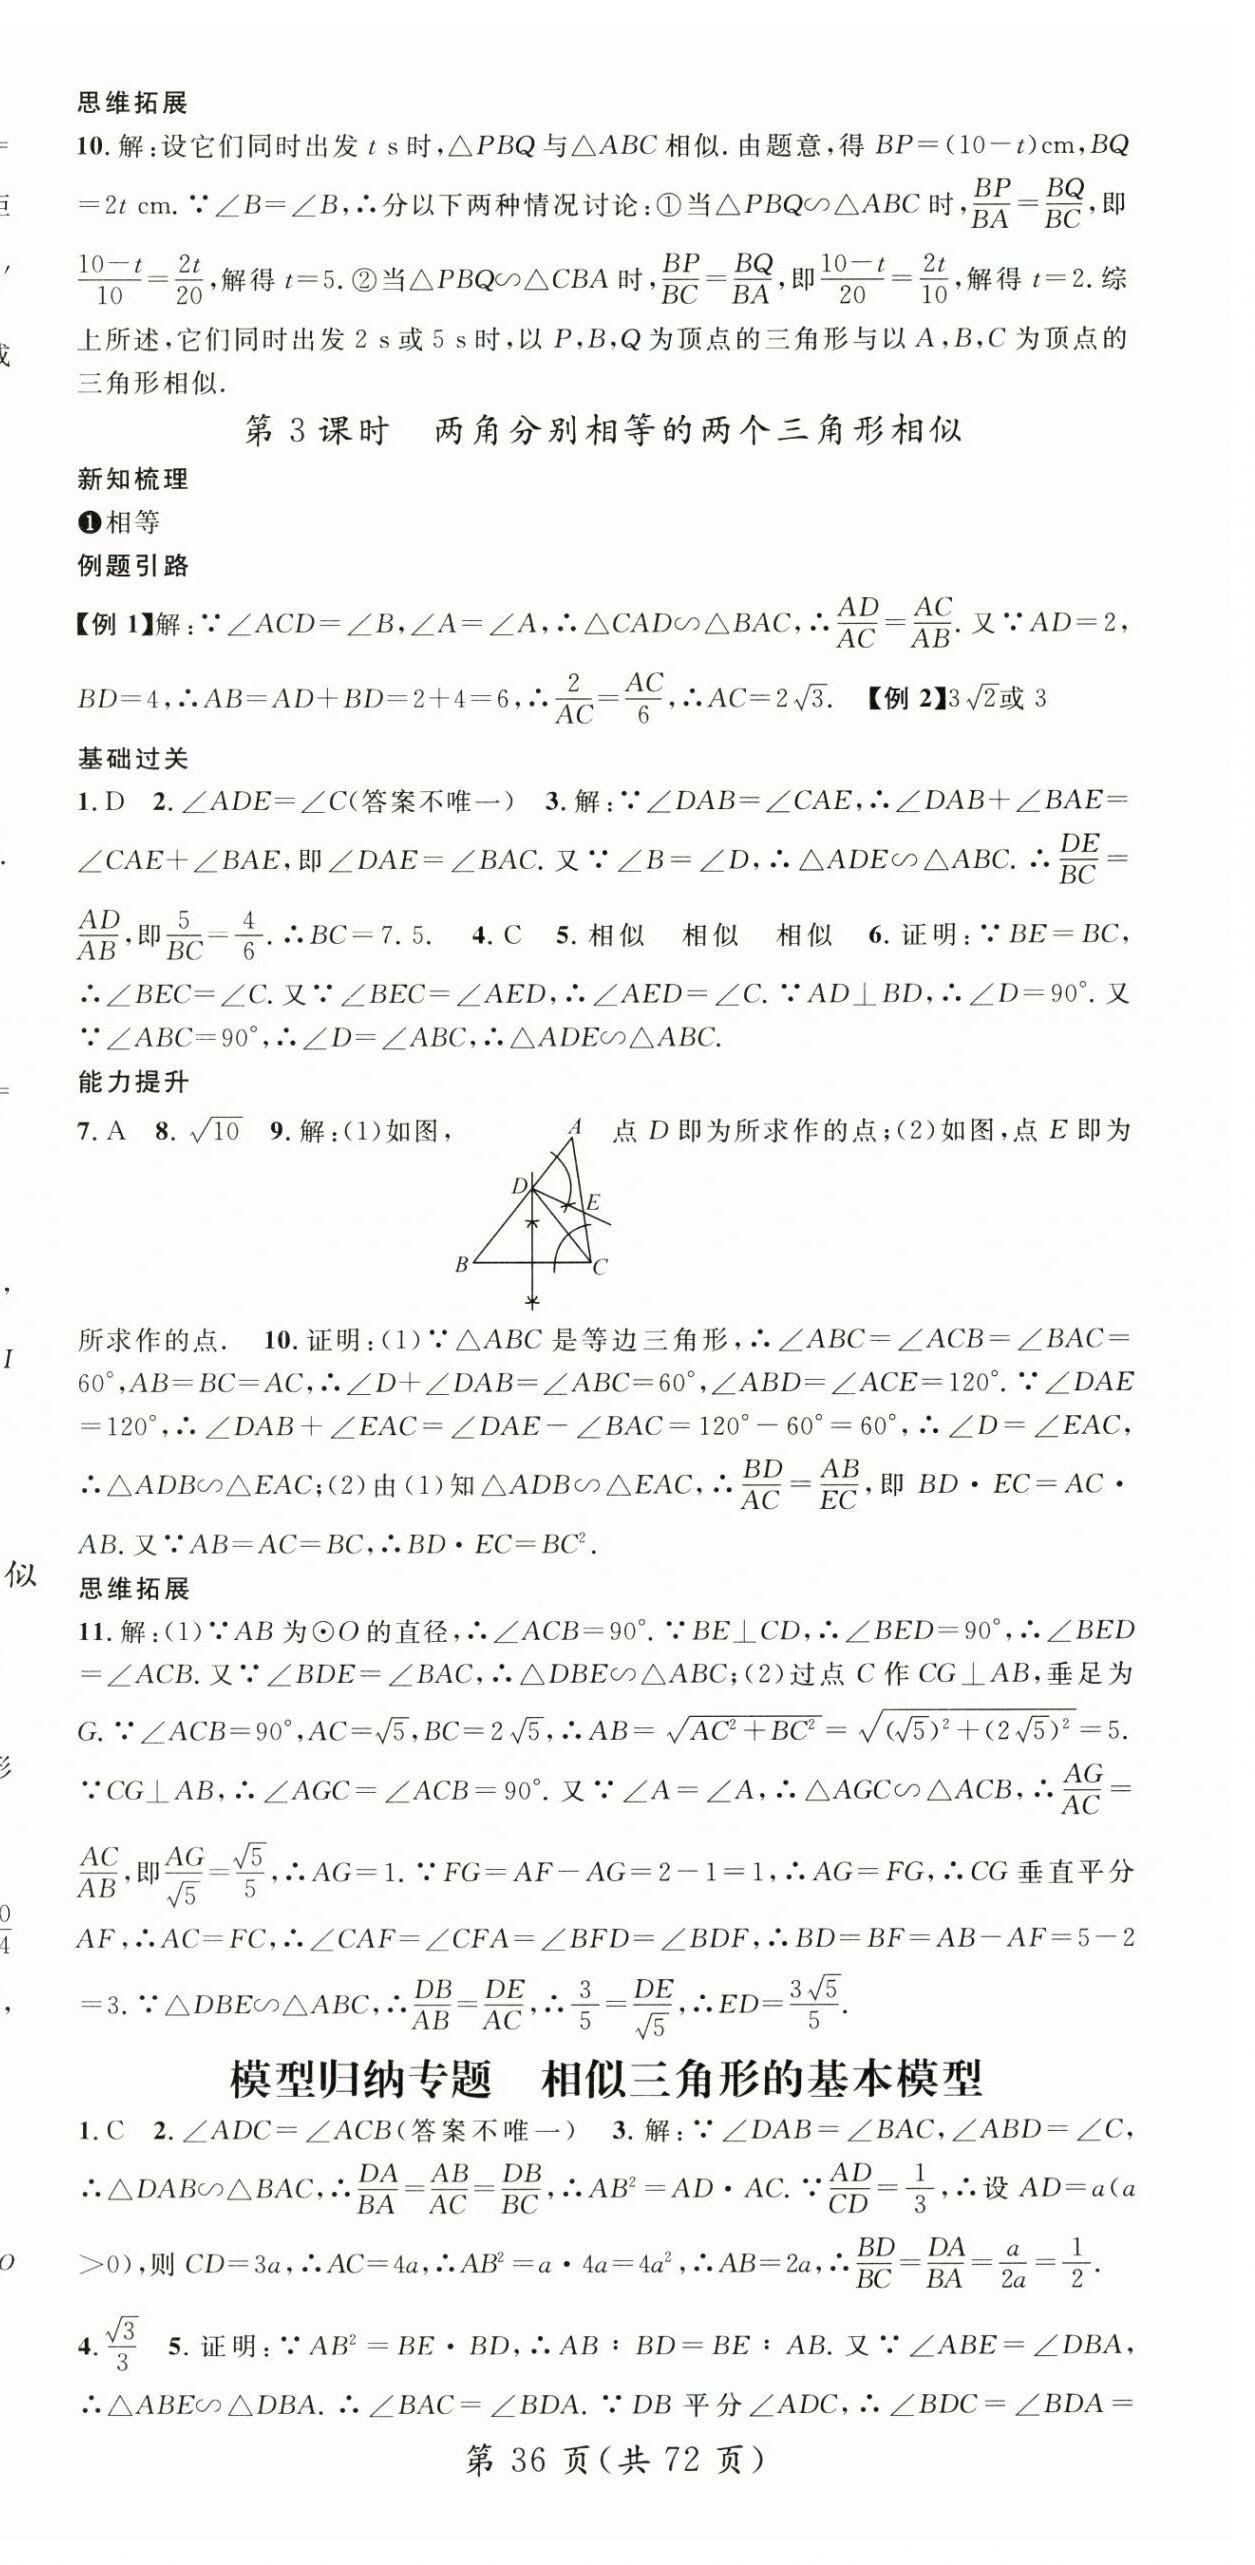 思维拓展
10. 解:设它们同时出发 t s 时,△PBQ 与△ABC 相似. 由题意,得 BP=(10-t)cm,BQ
=2t cm. ∵∠B=∠B,∴分以下两种情况讨论:①当△PBQ∽△ABC 时,BP/BA=BQ/BC,即
(10-t)/10=2t/20,解得 t=5. ②当△PBQ∽△CBA 时,BP/BC=BQ/BA,即(10-t)/20=2t/10,解得 t=2. 综
上所述,它们同时出发 2 s 或 5 s 时,以 P,B,Q 为顶点的三角形与以 A,B,C 为顶点的
三角形相似.
第 3 课时 两角分别相等的两个三角形相似
新知梳理
❶相等
例题引路
【例 1】解:∵∠ACD=∠B,∠A=∠A,∴△CAD∽△BAC,∴AD/AC=AC/AB. 又∵AD=2,
BD=4,∴AB=AD+BD=2+4=6,∴2/AC=AC/6,∴AC=2√3. 【例 2】3√2或 3
基础过关
1. D 2. ∠ADE=∠C(答案不唯一) 3. 解:∵∠DAB=∠CAE,∴∠DAB+∠BAE=
∠CAE+∠BAE,即∠DAE=∠BAC. 又∵∠B=∠D,∴△ADE∽△ABC. ∴DE/BC=
AD/AB,即5/BC=4/6. ∴BC=7.5. 4. C 5. 相似 相似 相似 6. 证明:∵BE=BC,
∴∠BEC=∠C. 又∵∠BEC=∠AED,∴∠AED=∠C. ∵AD⊥BD,∴∠D=90°. 又
∵∠ABC=90°,∴∠D=∠ABC,∴△ADE∽△ABC.
能力提升
7. A 8. √10 9. 解:(1)如图, 点 D 即为所求作的点;(2)如图,点 E 即为
A
D
E
B
C
所求作的点. 10. 证明:(1)∵△ABC 是等边三角形,∴∠ABC=∠ACB=∠BAC=
60°,AB=BC=AC,∴∠D+∠DAB=∠ABC=60°,∠ABD=∠ACE=120°. ∵∠DAE
=120°,∴∠DAB+∠EAC=∠DAE-∠BAC=120°-60°=60°,∴∠D=∠EAC,
∴△ADB∽△EAC;(2)由(1)知△ADB∽△EAC,∴BD/AC=AB/EC,即 BD·EC=AC·
AB. 又∵AB=AC=BC,∴BD·EC=BC².
思维拓展
11. 解:(1)∵AB 为⊙O 的直径,∴∠ACB=90°. ∵BE⊥CD,∴∠BED=90°,∴∠BED
=∠ACB. 又∵∠BDE=∠BAC,∴△DBE∽△ABC;(2)过点 C 作 CG⊥AB,垂足为
G. ∵∠ACB=90°,AC=√5,BC=2√5,∴AB=√(AC²+BC²)=√((√5)²+(2√5)²)=5.
∵CG⊥AB,∴∠AGC=∠ACB=90°. 又∵∠A=∠A,∴△AGC∽△ACB,∴AG/AC=
AC/AB,即AG/√5=√5/5,∴AG=1. ∵FG=AF-AG=2-1=1,∴AG=FG,∴CG 垂直平分
AF,∴AC=FC,∴∠CAF=∠CFA=∠BFD=∠BDF,∴BD=BF=AB-AF=5-2
=3. ∵△DBE∽△ABC,∴DB/AB=DE/AC,∴3/5=DE/√5,∴ED=3√5/5.
模型归纳专题 相似三角形的基本模型
1. C 2. ∠ADC=∠ACB(答案不唯一) 3. 解:∵∠DAB=∠BAC,∠ABD=∠C,
∴△DAB∽△BAC,∴DA/BA=AB/AC=DB/BC,∴AB²=AD·AC. ∵AD/CD=1/3,∴设 AD=a(a
>0),则 CD=3a,∴AC=4a,∴AB²=a·4a=4a²,∴AB=2a,∴BD/BC=DA/BA=a/2a=1/2.
4. √3/3 5. 证明:∵AB²=BE·BD,∴AB:BD=BE:AB. 又∵∠ABE=∠DBA,
∴△ABE∽△DBA. ∴∠BAC=∠BDA. ∵DB 平分∠ADC,∴∠BDC=∠BDA=
第 36 页(共 72 页)
似